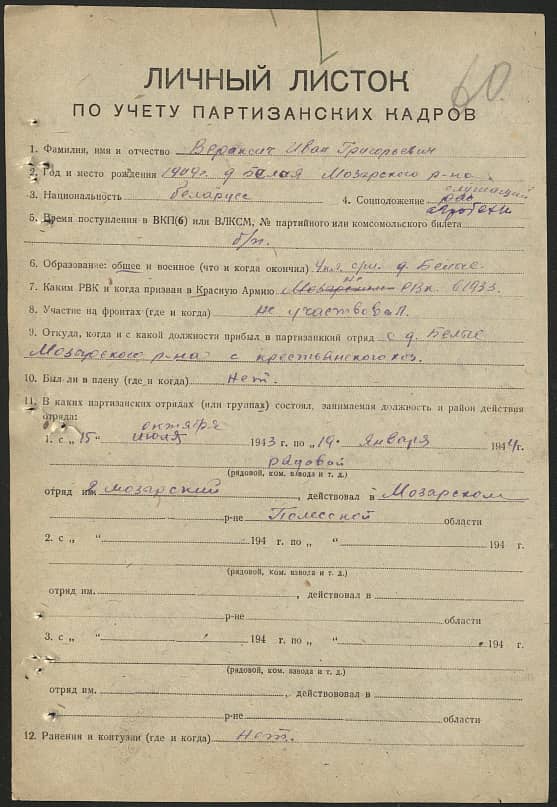 60.
ЛИЧНЫЙ ЛИСТОК
ПО УЧЕТУ ПАРТИЗАНСКИХ КАДРОВ
1. Фамилия, имя и отчество Вераксич Иван Григорьевич
2. Год и место рождения 1909 г. д Белая Мозарского р-на.
3. Национальность беларусс 4. Соцположение служащий
5. Время поступления в ВКП(б) или ВЛКСМ, № партийного или комсомольского билета
б/п.
6. Образование: общее и военное (что и когда окончил) 4 кл. д. Белые.
7. Каким РВК и когда призван в Красную Армию РВК. 1933.
8. Участие на фронтах (где и когда) не участвовал.
9. Откуда, когда и с какой должности прибыл в партизанкий отряд с д. Белые
Мозарского р-на с крестьянского хоз.
10. Был ли в плену (где и когда) Нет.
11. В каких партизанских отрядах (или группах) состоял, занимаемая должность и район действия
отряда:
октября
1. с „15" июля 1943 г. по „19" января 1944 г.
рядовой
(рядовой, ком. взвода и т. д.)
отряд им. 2 мозарский, действовал в Мозарском
р-не Полесской области
2. с „ " 194 г. по „ " 194 г.
(рядовой, ком. взвода и т. д.)
отряд им. , действовал в
р-не области
3. с „ " 194 г. по „ " 194 г.
(рядовой, ком. взвода и т. д.)
отряд им. , действововал в
р-не области
12. Ранения и контузии (где и когда) Нет.